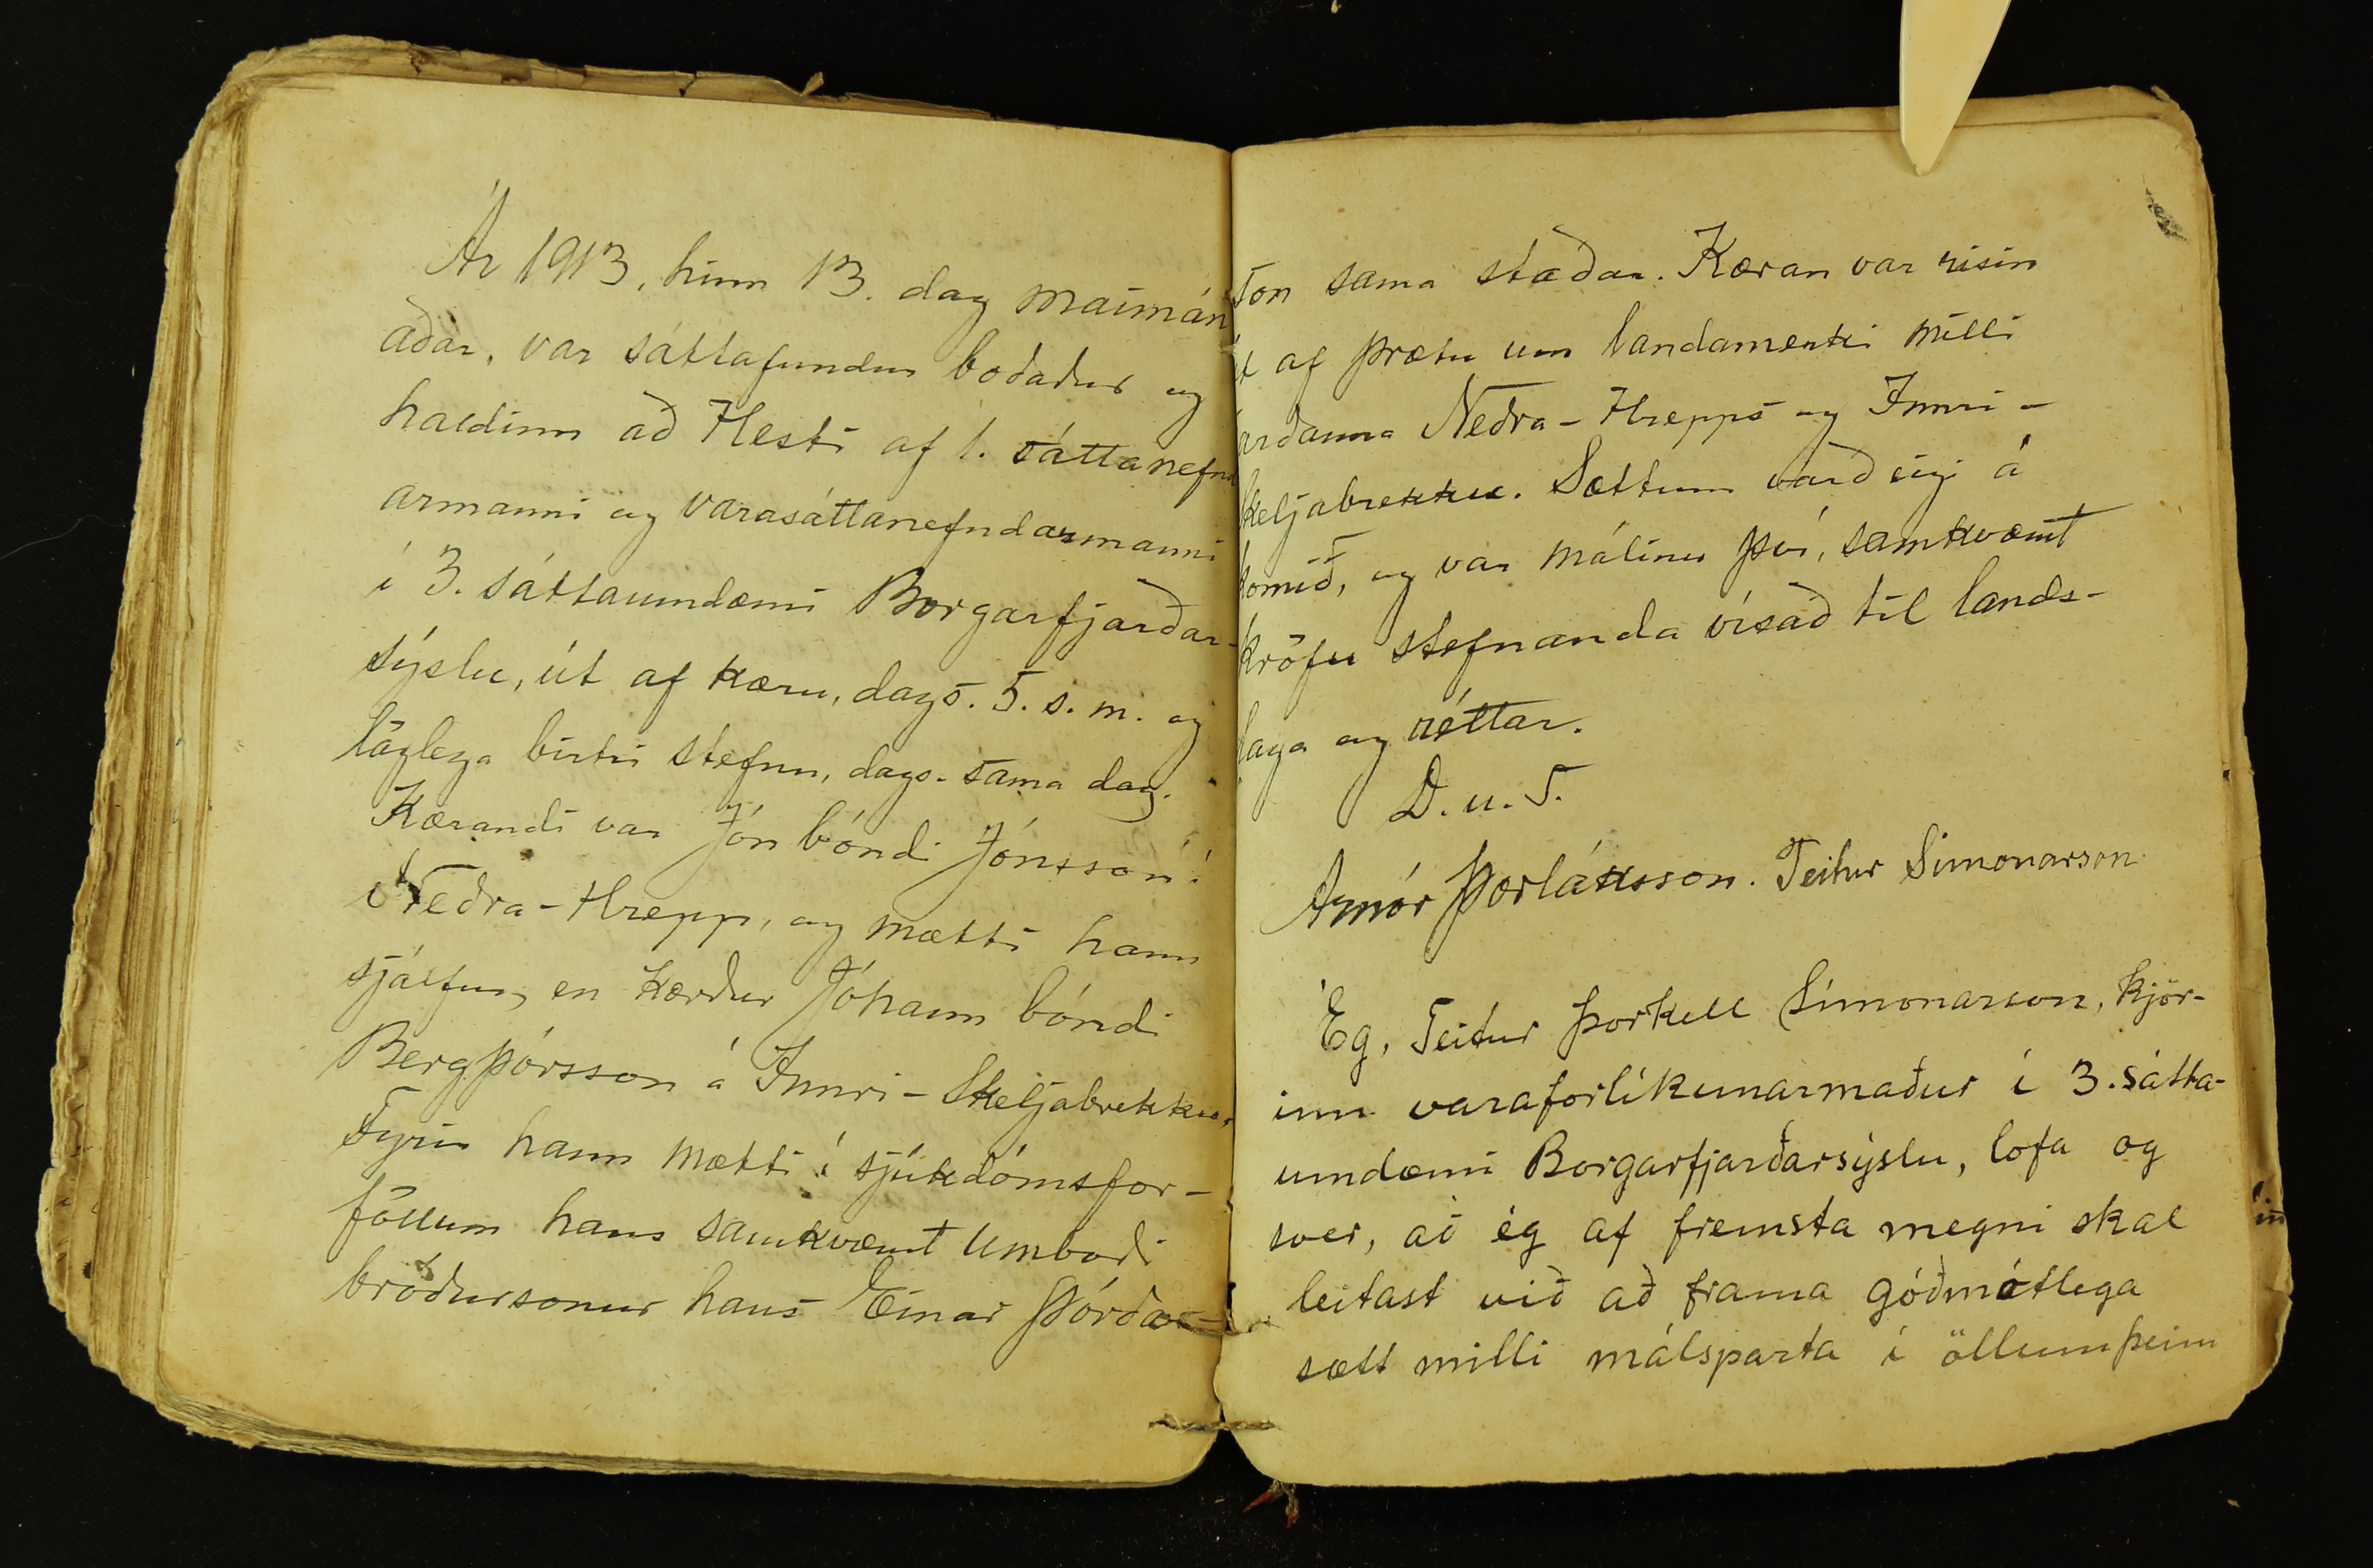 Ár 1913, hinn 13. dag maímán
aðar, var sáttafundur boðaður og
haldinn að Hesti af 1. sáttanefnd
armanni og varasáttanefndarmanni
í 3. sáttaumdæmi Borgarfjarðar-
sýslu, út af kæru, dags. 5. s. m. og
löglega birtri stefnu, dags. sama dag.
Kærandi var Jón bóndi Jónsson í
Neðra-Hrepp, og mætti hann
sjálfur, en kærður Jóhann bóndi
Bergþórsson á Innri-Skeljabrekku,
Fyrir hann mætti í sjúkdómsfor-
föllum hans samkvæmt umboði
bróðursonur hans Einar Þórðar-
son sama staðar. Kæran var risin
út af þrætu um landamerki milli
jarðanna Neðra-Hrepps og Innri-
Skeljabrekku. Sættum varð eigi á
komið, og var málinu því, samkvæmt
kröfu stefnanda vísað til lands-
laga og réttar.
D. u. S.
Arnór Þorláksson. Teitur Símonarson
Ég, Teitur Þorkell Símonarson, kjör-
inn varaforlíkunarmaður í 3. sátta-
umdæmi Borgarfjarðarsýslu, lofa og
sver, að ég af fremsta megni skal
leitast við að frama góðmótlega
sætt milli málsparta í öllum þeim